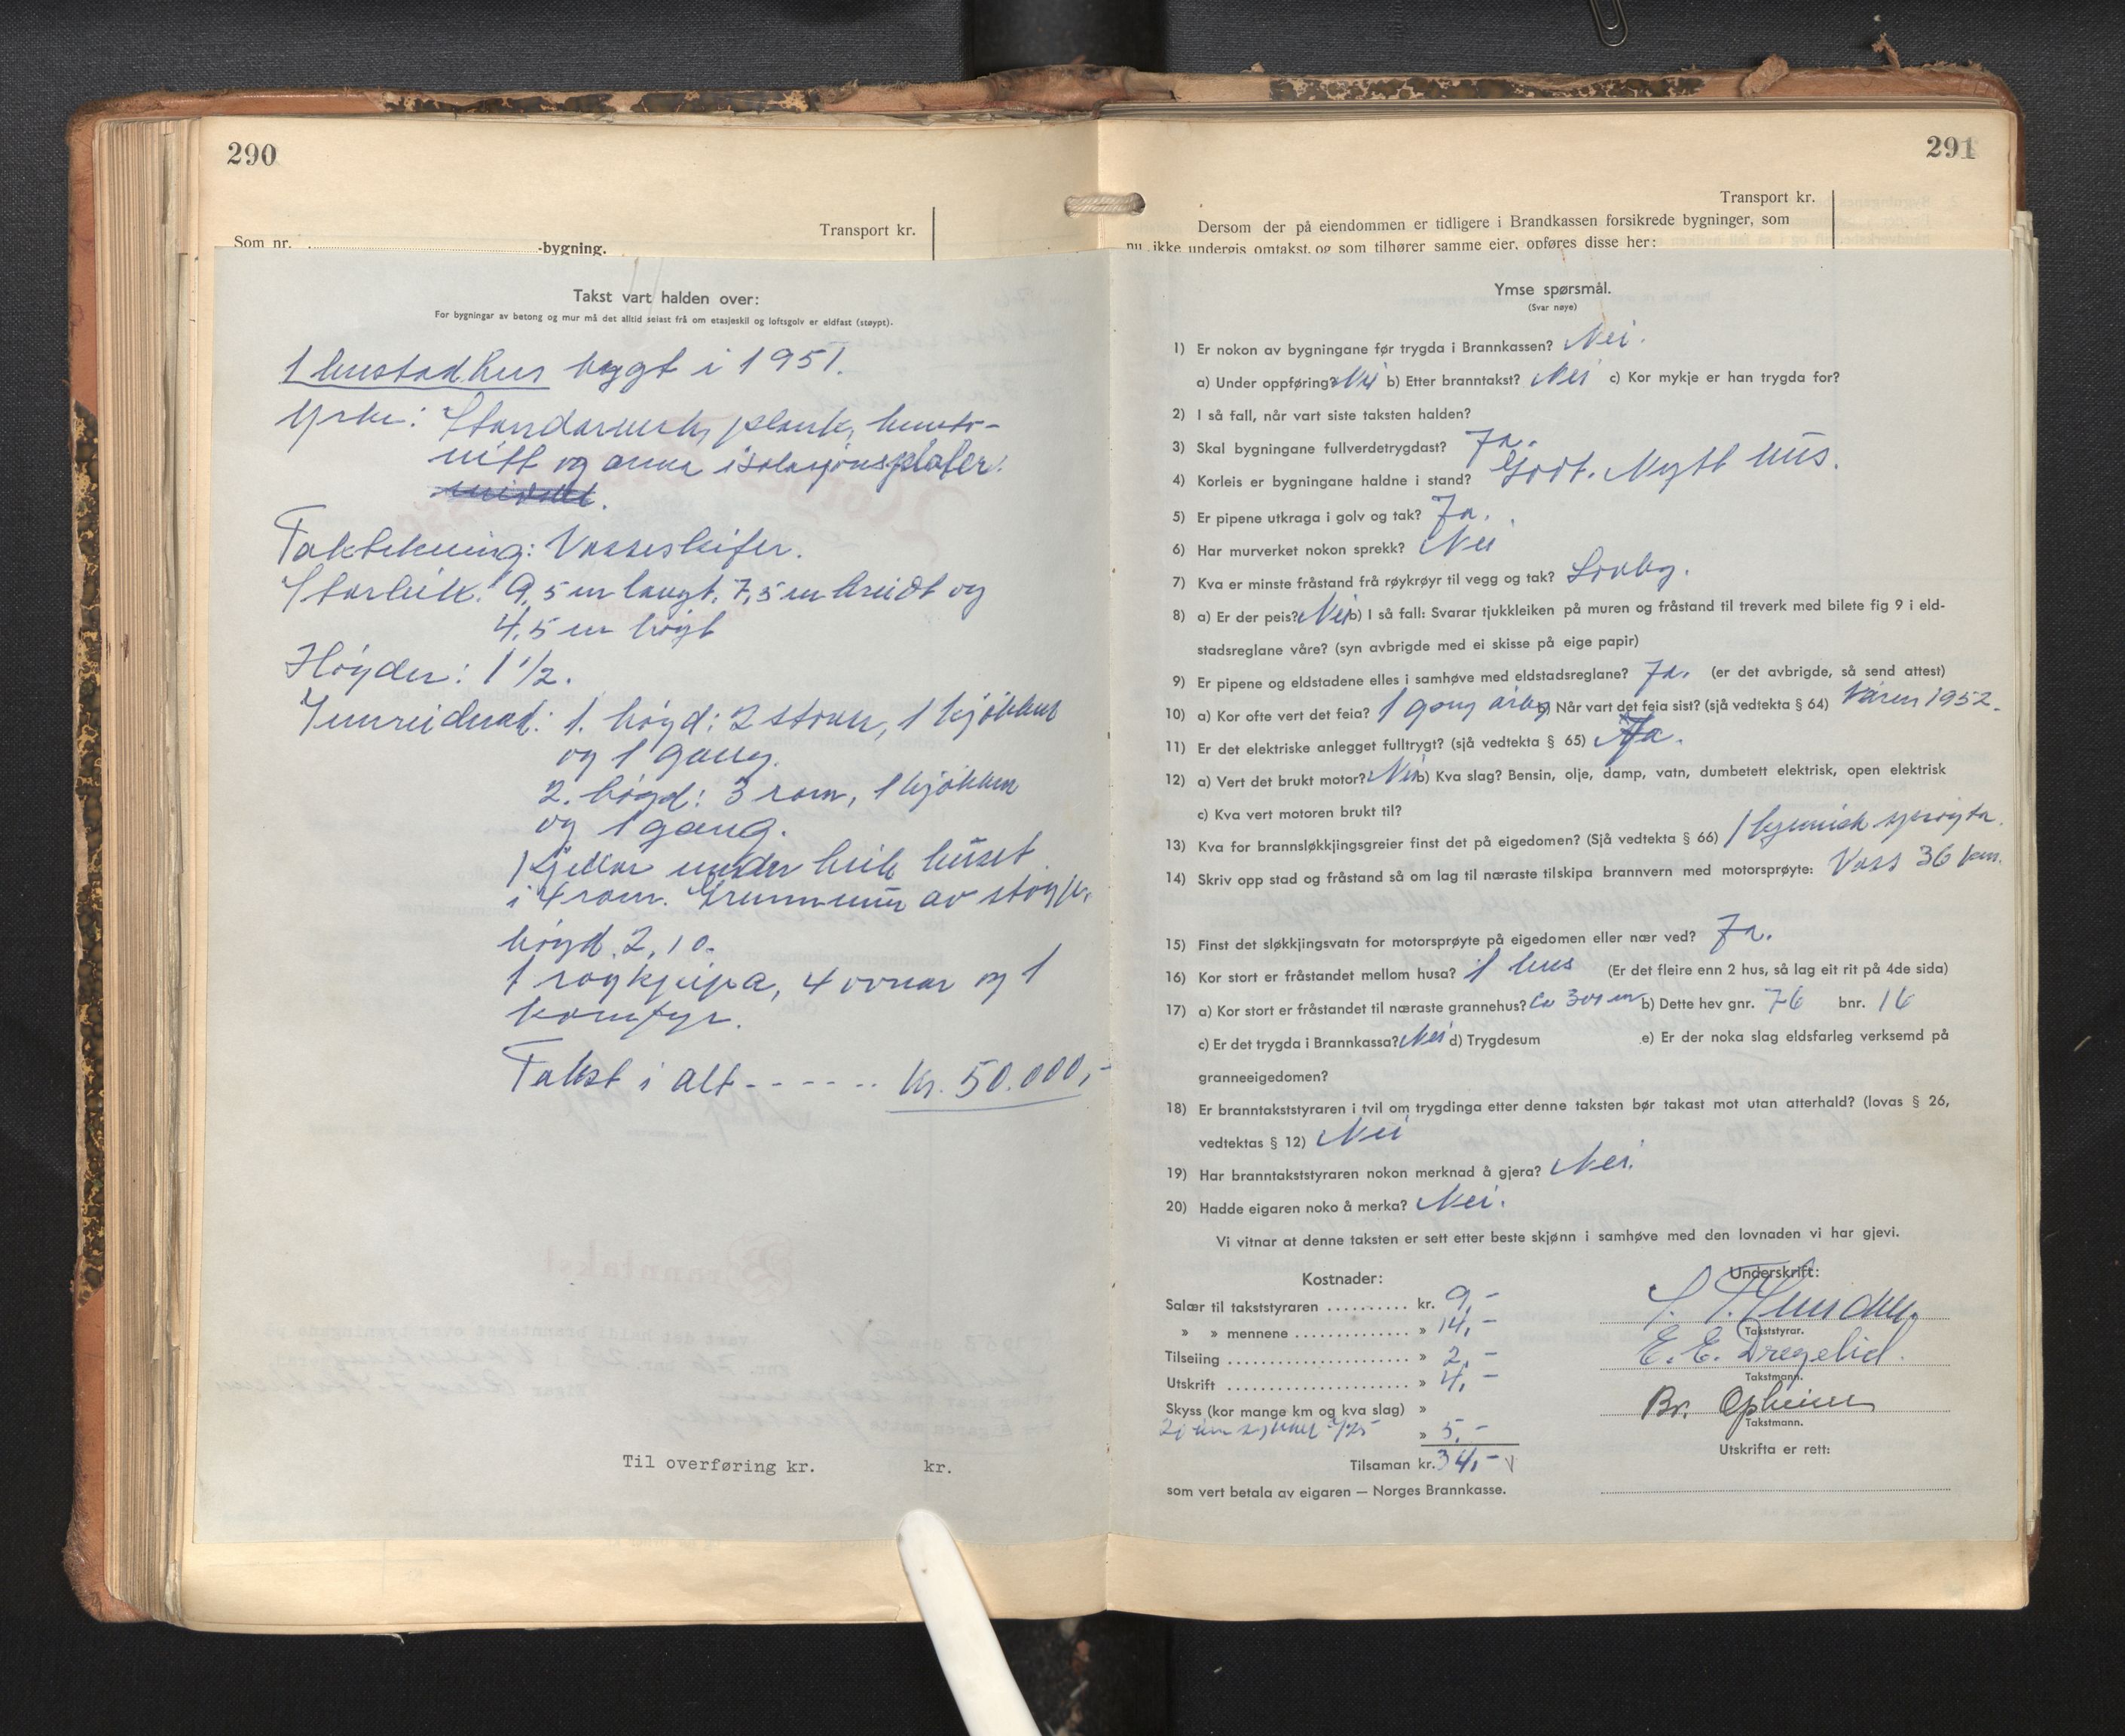 290
Transport kr.
Som nr. -bygning.
Takst vart halden over:
For bygningar av betong og mur må det alltid seiast frå om etasjeskil og loftsgolv er eldfast (støypt).
1 bustadhus bygt i 1951.
Yrke: Standarverk, plank,
nitt og anna isolasjonsplater.
Taktekning: Vosseskifer.
Storleik: 9,5 m langt, 7,5 m breidt og
4,5 m høgt
Høgder: 1 1/2.
Innreidnad: 1. høgd: 2 stover, 1 kjøkken
og 1 gang.
2. høgd: 3 rom, 1 kjøkken
og 1 gang.
Kjellar under heile huset
i 4 rom. Grunnmur av støyp,
høgd 2,10.
1 røykpipa, 4 ovnar og 1
komfyr.
Takst i alt - - - - - - kr. 50.000,-
Til overføring kr. kr.
291
Transport kr.
Dersom der på eiendommen er tidligere i Brandkassen forsikrede bygninger, som
nu ikke undergis omtakst, og som tilhører samme eier, opføres disse her:
Ymse spørsmål.
(Svar nøye)
1) Er nokon av bygningane før trygda i Brannkassen? Nei.
a) Under oppføring? Nei b) Etter branntakst? Nei c) Kor mykje er han trygda for?
2) I så fall, når vart siste taksten halden?
3) Skal bygningane fullverdetrygdast? Ja.
4) Korleis er bygningane haldne i stand? Godt. Nytt hus.
5) Er pipene utkraga i golv og tak? Ja.
6) Har murverket nokon sprekk? Nei
7) Kva er minste fråstand frå røykrøyr til vegg og tak? Lovleg.
8) a) Er der peis? Nei b) I så fall: Svarar tjukkleiken på muren og fråstand til treverk med bilete fig 9 i eld-
stadsreglane våre? (syn avbrigde med ei skisse på eige papir)
9) Er pipene og eldstadene elles i samhøve med eldstadsreglane? Ja. (er det avbrigde, så send attest)
10) a) Kor ofte vert det feia? 1 gong årleg b) Når vart det feia sist? (sjå vedtekta § 64) Våren 1952.
11) Er det elektriske anlegget fulltrygt? (sjå vedtekta § 65) Ja.
12) a) Vert det brukt motor? Nei b) Kva slag? Bensin, olje, damp, vatn, dumbetett elektrisk, open elektrisk
c) Kva vert motoren brukt til?
13) Kva for brannsløkkjingsgreier finst det på eigedomen? (Sjå vedtekta § 66) 1 kjemisk sprøyta.
14) Skriv opp stad og fråstand så om lag til næraste tilskipa brannvern med motorsprøyte: Voss 36 km.
15) Finst det sløkkjingsvatn for motorsprøyte på eigedomen eller nær ved? Ja.
16) Kor stort er fråstandet mellom husa? 1 hus (Er det fleire enn 2 hus, så lag eit rit på 4de sida)
17) a) Kor stort er fråstandet til næraste grannehus? Ca 300 m b) Dette hev gnr. 76 bnr. 16
c) Er det trygda i Brannkassa? Nei d) Trygdesum e) Er der noka slag eldsfarleg verksemd på
granneeigedomen?
18) Er branntakststyraren i tvil om trygdinga etter denne taksten bør takast mot utan atterhald? (lovas § 26,
vedtektas § 12) Nei
19) Har branntakststyraren nokon merknad å gjera? Nei.
20) Hadde eigaren noko å merka? Nei.
Vi vitnar at denne taksten er sett etter beste skjønn i samhøve med den lovnaden vi har gjevi.
Kostnader:
Salær til takststyraren .......... kr. 9,-
» » mennene .............. » 14,-
Tilseiing ....................... » 2,-
Utskrift ........................ » 4,-
Skyss (kor mange km og kva slag) »
» 5,-
Tilsaman kr. 34,-
som vert betala av eigaren — Norges Brannkasse.
Underskrift:
Takststyrar.
E. E. Dregelid.
Takstmann.
Br. Opheim
Takstmann.
Utskrifta er rett: